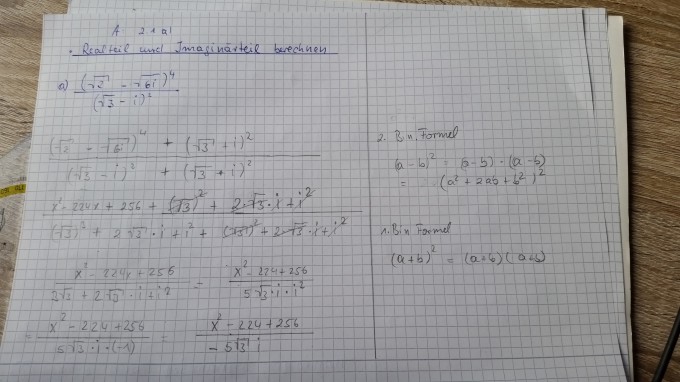 A 2+a)
• Realteil und Imaginärteil berechnen
a) (√2 - √6i)⁴ / (√3 - i)²
(√2 - √6i)⁴ + (√3 + i)² / (√3 - i)² + (√3 + i)²
x² - 224x + 256 + (√3)² + 2√3·i + i² / (√3)² + 2√3·i + i² + (√3)² + 2√3·i + i²
x² - 224x + 256 / 3√2 + 2√3·i + i² = x² - 224 + 256 / 5√3·i·i²
= x² - 224 + 256 / 5√3·i·(-1) = x² - 224 + 256 / - 5√3 i
2. Bin. Formel
(a - b)² = (a - b) · (a - b)
= (a² + 2ab + b²)²
1. Bin Formel
(a + b)² = (a + b) (a + b)